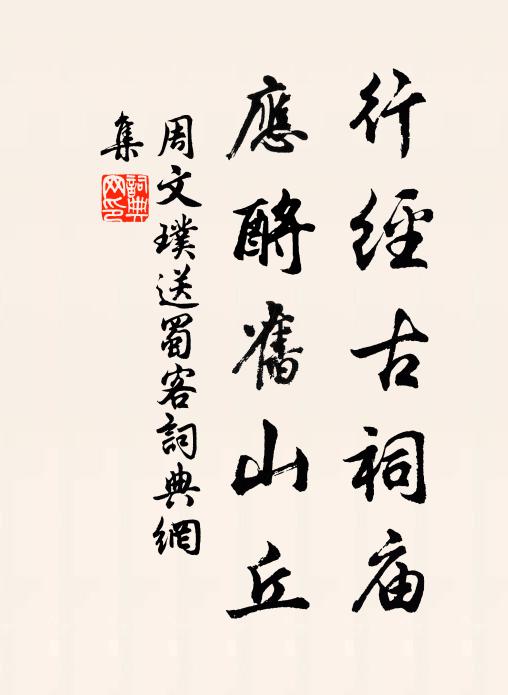 行經古祠庙
應酹舊山丘
周文璞送蜀客詞典網
集
詞典网印